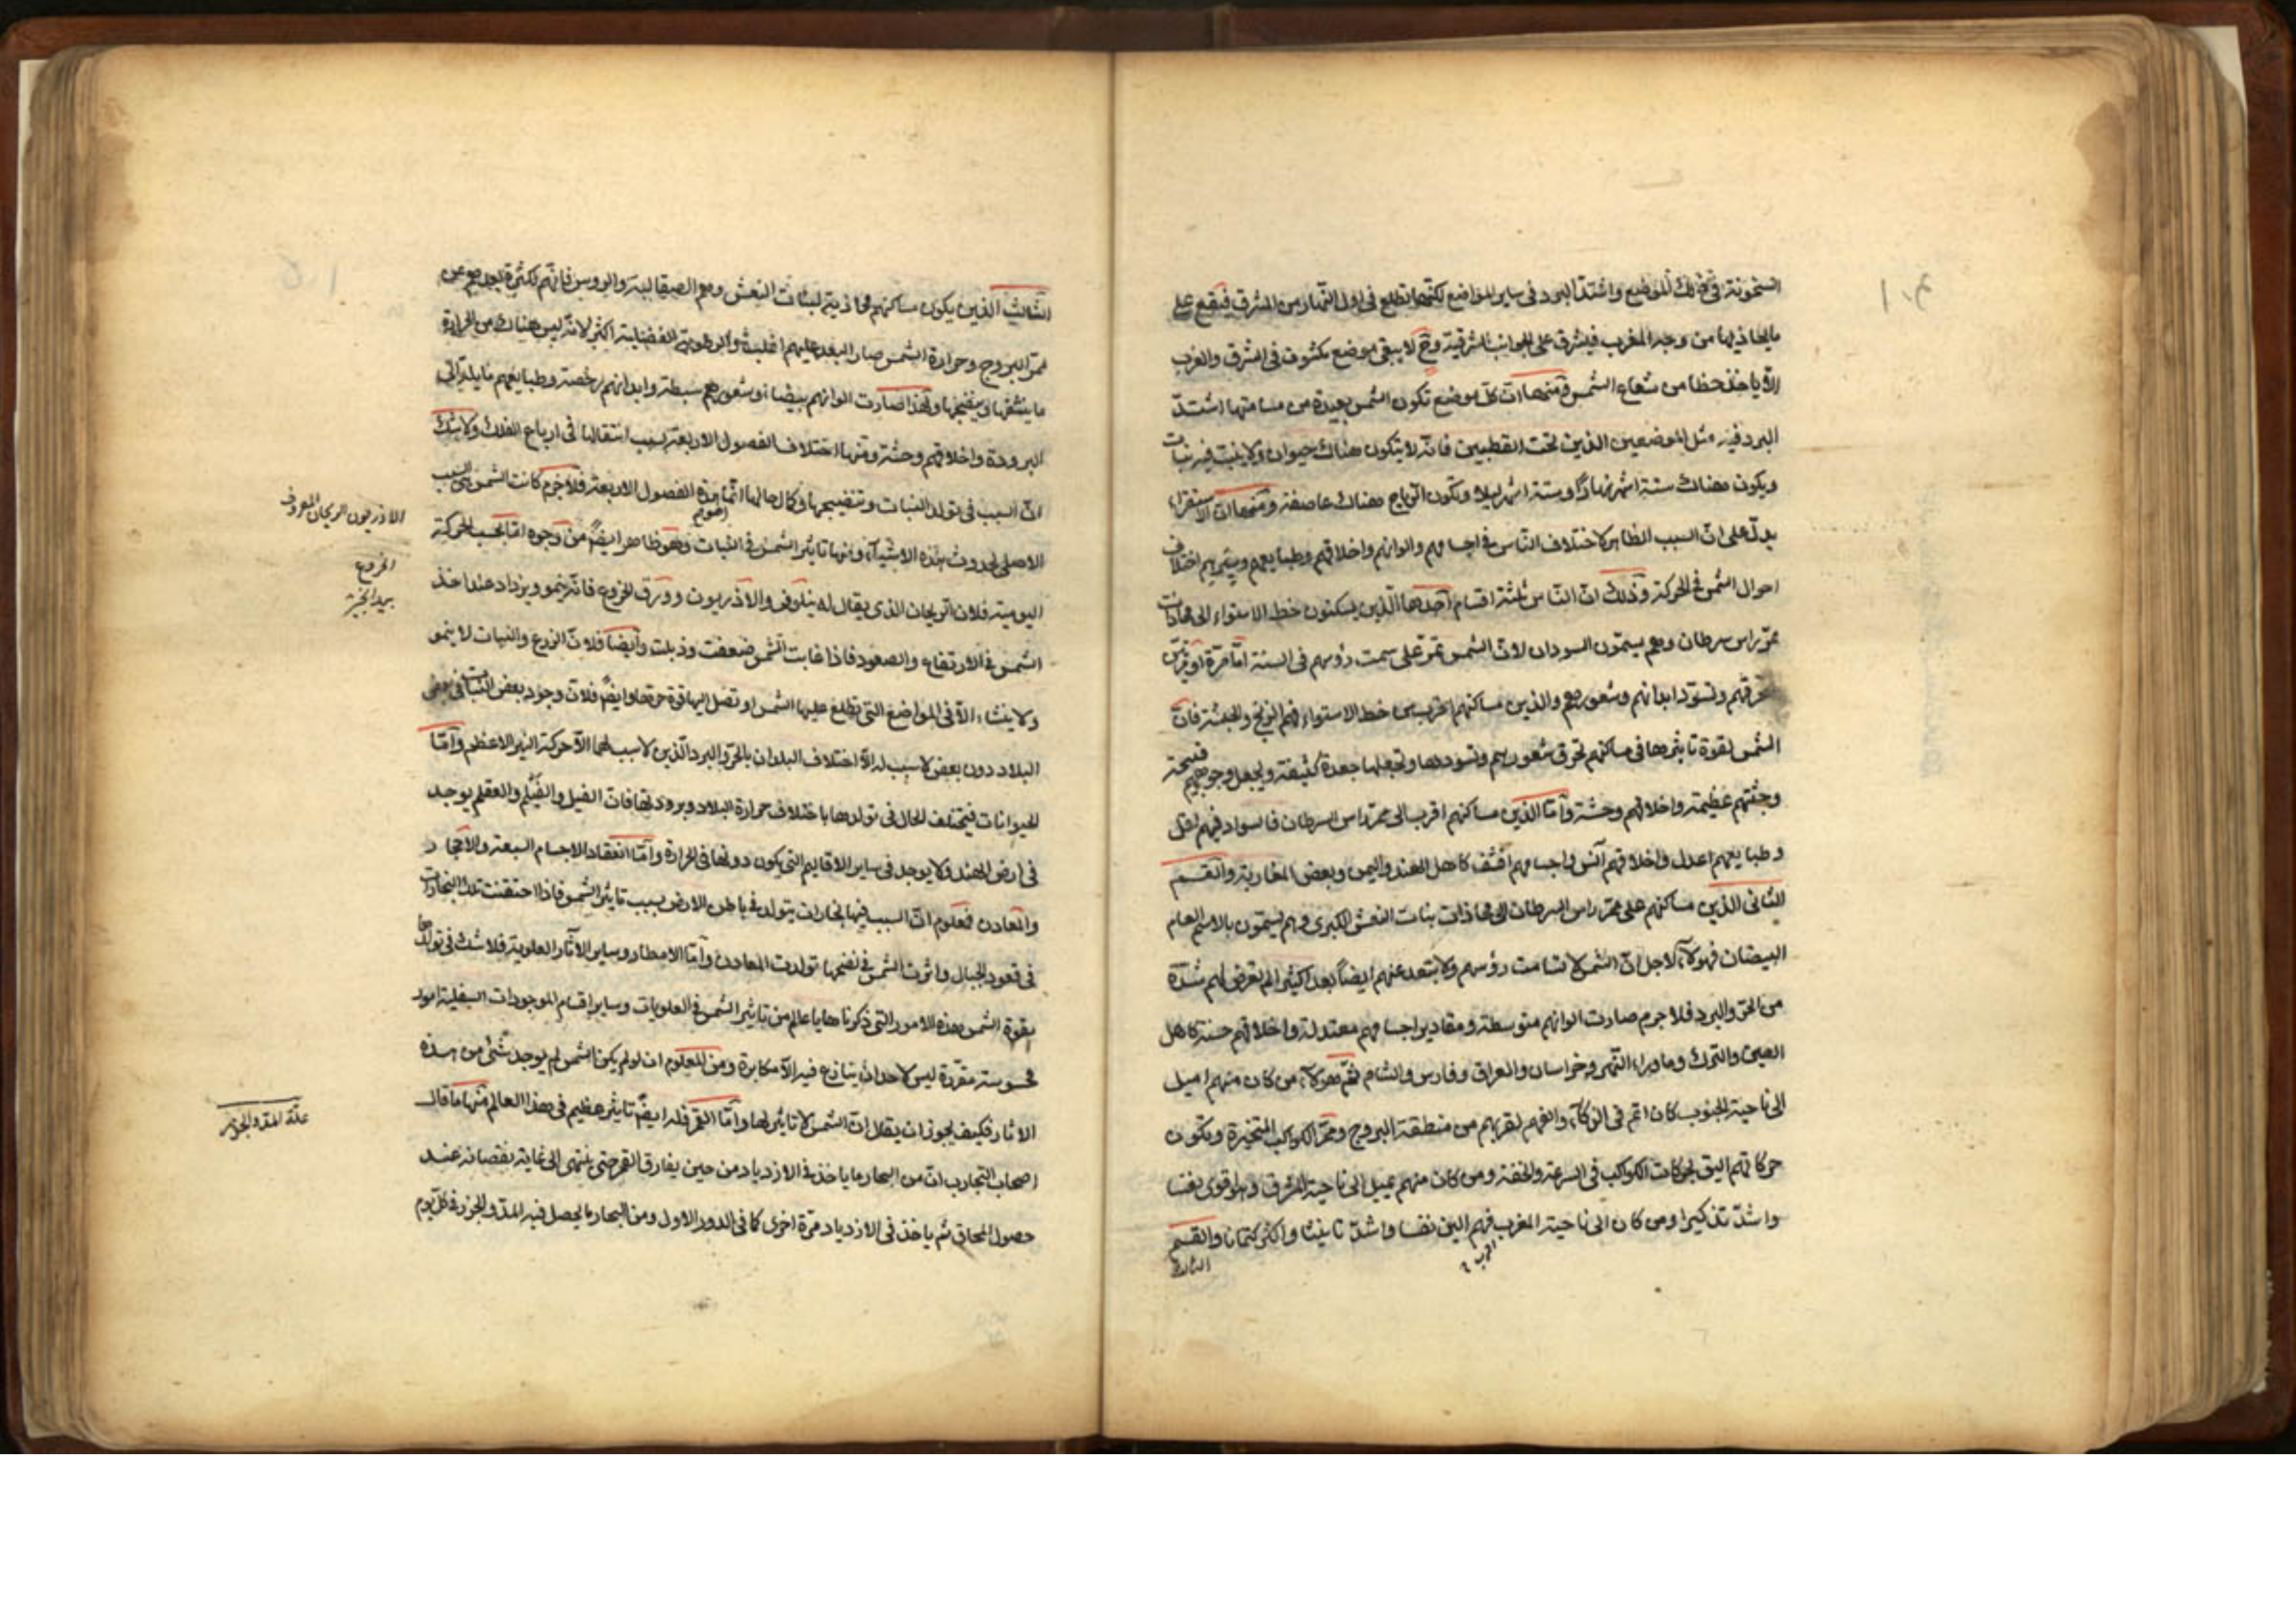 السخونة في ذلك الموضع واشتد البرد في ساير المواضع لكنها تطلع في اول النهار من المشرق فيقع على
ما يحاذيها من وجه المغرب فيشرق على الجوانب الشرقية وح لا يبقى موضع مكشوف في المشرق والمغرب
الا ياخذ حظا من شعاع الشمس ومنها ان كل موضع تكون الشمس بعيدة من مسامتها اشتد
البرد فيه مثل الموضعين الذين تحت القطبين فانه لا يتكون هناك حيوان ولا ينبت فيه نبات
ويكون هناك ستة اشهر نهارا وستة اشهر ليلا وتكون الرياح هناك عاصفة ومنها ان الاستقراء
يدل على ان السبب الظاهر لاختلاف الناس في اجسامهم والوانهم واخلاقهم وطبايعهم وسيرهم اختلاف
احوال الشمس في الحركة وذلك ان الناس ثلثة اقسام احدها الذين يسكنون خط الاستواء الى محاذات
ممر راس سرطان وهم يسمون السودان لان الشمس تمر على سمت رؤسهم في السنة اما مرة او مرتين
فتحرقهم وتسود ابدانهم وشعورهم والذين مساكنهم اقرب من خط الاستواء فهم الزنج والحبشة فان
الشمس لقوة تاثيرها في مساكنهم تحرق شعورهم وتسودها وتجعلها جعدة كثيفة ويجعل وجوههم قبيحة
وجثتهم عظيمة واخلاقهم وحشة واما الذين مساكنهم اقرب الى ممر راس السرطان فالسواد فيهم اقل
وطبايعهم اعدل واخلاقهم آنس واجسامهم اقشف كاهل الهند واليمن وبعض المغاربة والقسم
الثاني الذين مساكنهم على ممر راس السرطان الى محاذات بنات النعش الكبرى وهم يسمون بالاسم العام
البيضان فهؤلاء لاجل ان الشمس لا تسامت رؤسهم ولا يبتعد عنهم ايضا بعدا كثيرا لم يعرض لهم شدة
من الحر والبرد فلا جرم صارت الوانهم متوسطة ومقادير اجسامهم معتدلة واخلاقهم حسنة كاهل
الصين والترك وما وراء النهر وخراسان والعراق وفارس والشام ثم هؤلاء من كان منهم اميل
الى ناحية الجنوب كان اتم في الذكاء والفهم لقربهم من منطقة البروج وممر الكواكب المتحيرة وتكون
حركاتهم اليق بحركات الكواكب في السرعة والخفة ومن كان منهم يميل الى ناحية المشرق فهو اقوى نفسا
واشد تذكيرا ومن كان الى ناحية المغرب فهم الين نفسا واشد تانيثا واكثر كتمانا والقسم
الثالث
الثالث الذين يكون مساكنهم محاذية لبنات النعش وهم الصقالبة والروس فانهم لكثرة بعدهم عن
ممر البروج وحرارة الشمس صار البرد عليهم اغلب والرطوبة الفضلية اكثر لانه ليس هناك من الحرارة
ما ينشفها وينضجها ولهذا صارت الوانهم بيضا وشعورهم سبطة وابدانهم رخصة وطبايعهم مايلة الى
البرودة واخلاقهم وحشة ومنها اختلاف الفصول الاربعة بسبب انتقالها في ارباع الفلك ولا شك
ان السبب في تولد النبات وتنضيجها وكمال حالها انما هذه الفصول الاربعة فلا جرم كانت الشمس هي السبب
الاصلي لحدوث هذه الاشياء ومنها تاثير الشمس في النبات وهو ظاهر ايضا من وجوه اما بحسب الحركة
اليومية فلان الريحان الذي يقال له نيلوفر والآذريون وورق الخروع فانه ينمو ويزداد عند اخذ
الشمس في الارتفاع والصعود فاذا غابت الشمس ضعفت وذبلت وايضا فلان الزرع والنبات لا ينمو
ولا ينشاء الا في المواضع التي تطلع عليها الشمس او تصل اليها قوة حرها وايضا فلان وجود بعض النبات في بعض
البلاد دون بعض لا سبب له الا اختلاف البلدان بالحر والبرد الذين لا سبب لهما الا حركة النير الاعظم واما
الحيوانات فيختلف الحال في تولدها باختلاف حرارة البلاد وبرودتها فان الفيل والفيلم والعقلم يوجد
في ارض الهند ولا يوجد في ساير الاقاليم التي يكون دونها في الحرارة واما انعقاد الاجسام السبعة والاحجار
والمعادن فمعلوم ان السبب فيها بخارات يتولد في باطن الارض بسبب تاثير الشمس فاذا احتقنت تلك البخارات
في قعور الجبال واثرت الشمس في نضجها تولدت المعادن واما الامطار وساير الآثار العلوية فلا شك في تولدها
بقوة الشمس فهذه الامور التي ذكرناها يا عالم من تاثير الشمس في العلويات وساير اقسام الموجودات السفلية امور
محسوسة مقررة ليس لاحد ان ينازع فيه الا مكابرة ومن المعلوم ان لو لم يكن الشمس لم يوجد شئ من هذه
الاثار فكيف يجوز ان يقال ان الشمس لا تاثير لها واما القمر فله ايضا تاثير عظيم في هذا العالم منها ما قال
اصحاب التجارب ان من البحار ما ياخذ في الازدياد من حين يفارق القمر حتى ينتهى الى غاية نقصانه عند
حصول المحاق ثم ياخذ في الازدياد مرة اخرى كما في الدور الاول ومن البحار ما يحصل فيه المد والجزر في كل يوم
الاذريون الريحان المعروف
الخروع
بيد انجير
علة المد والجزر